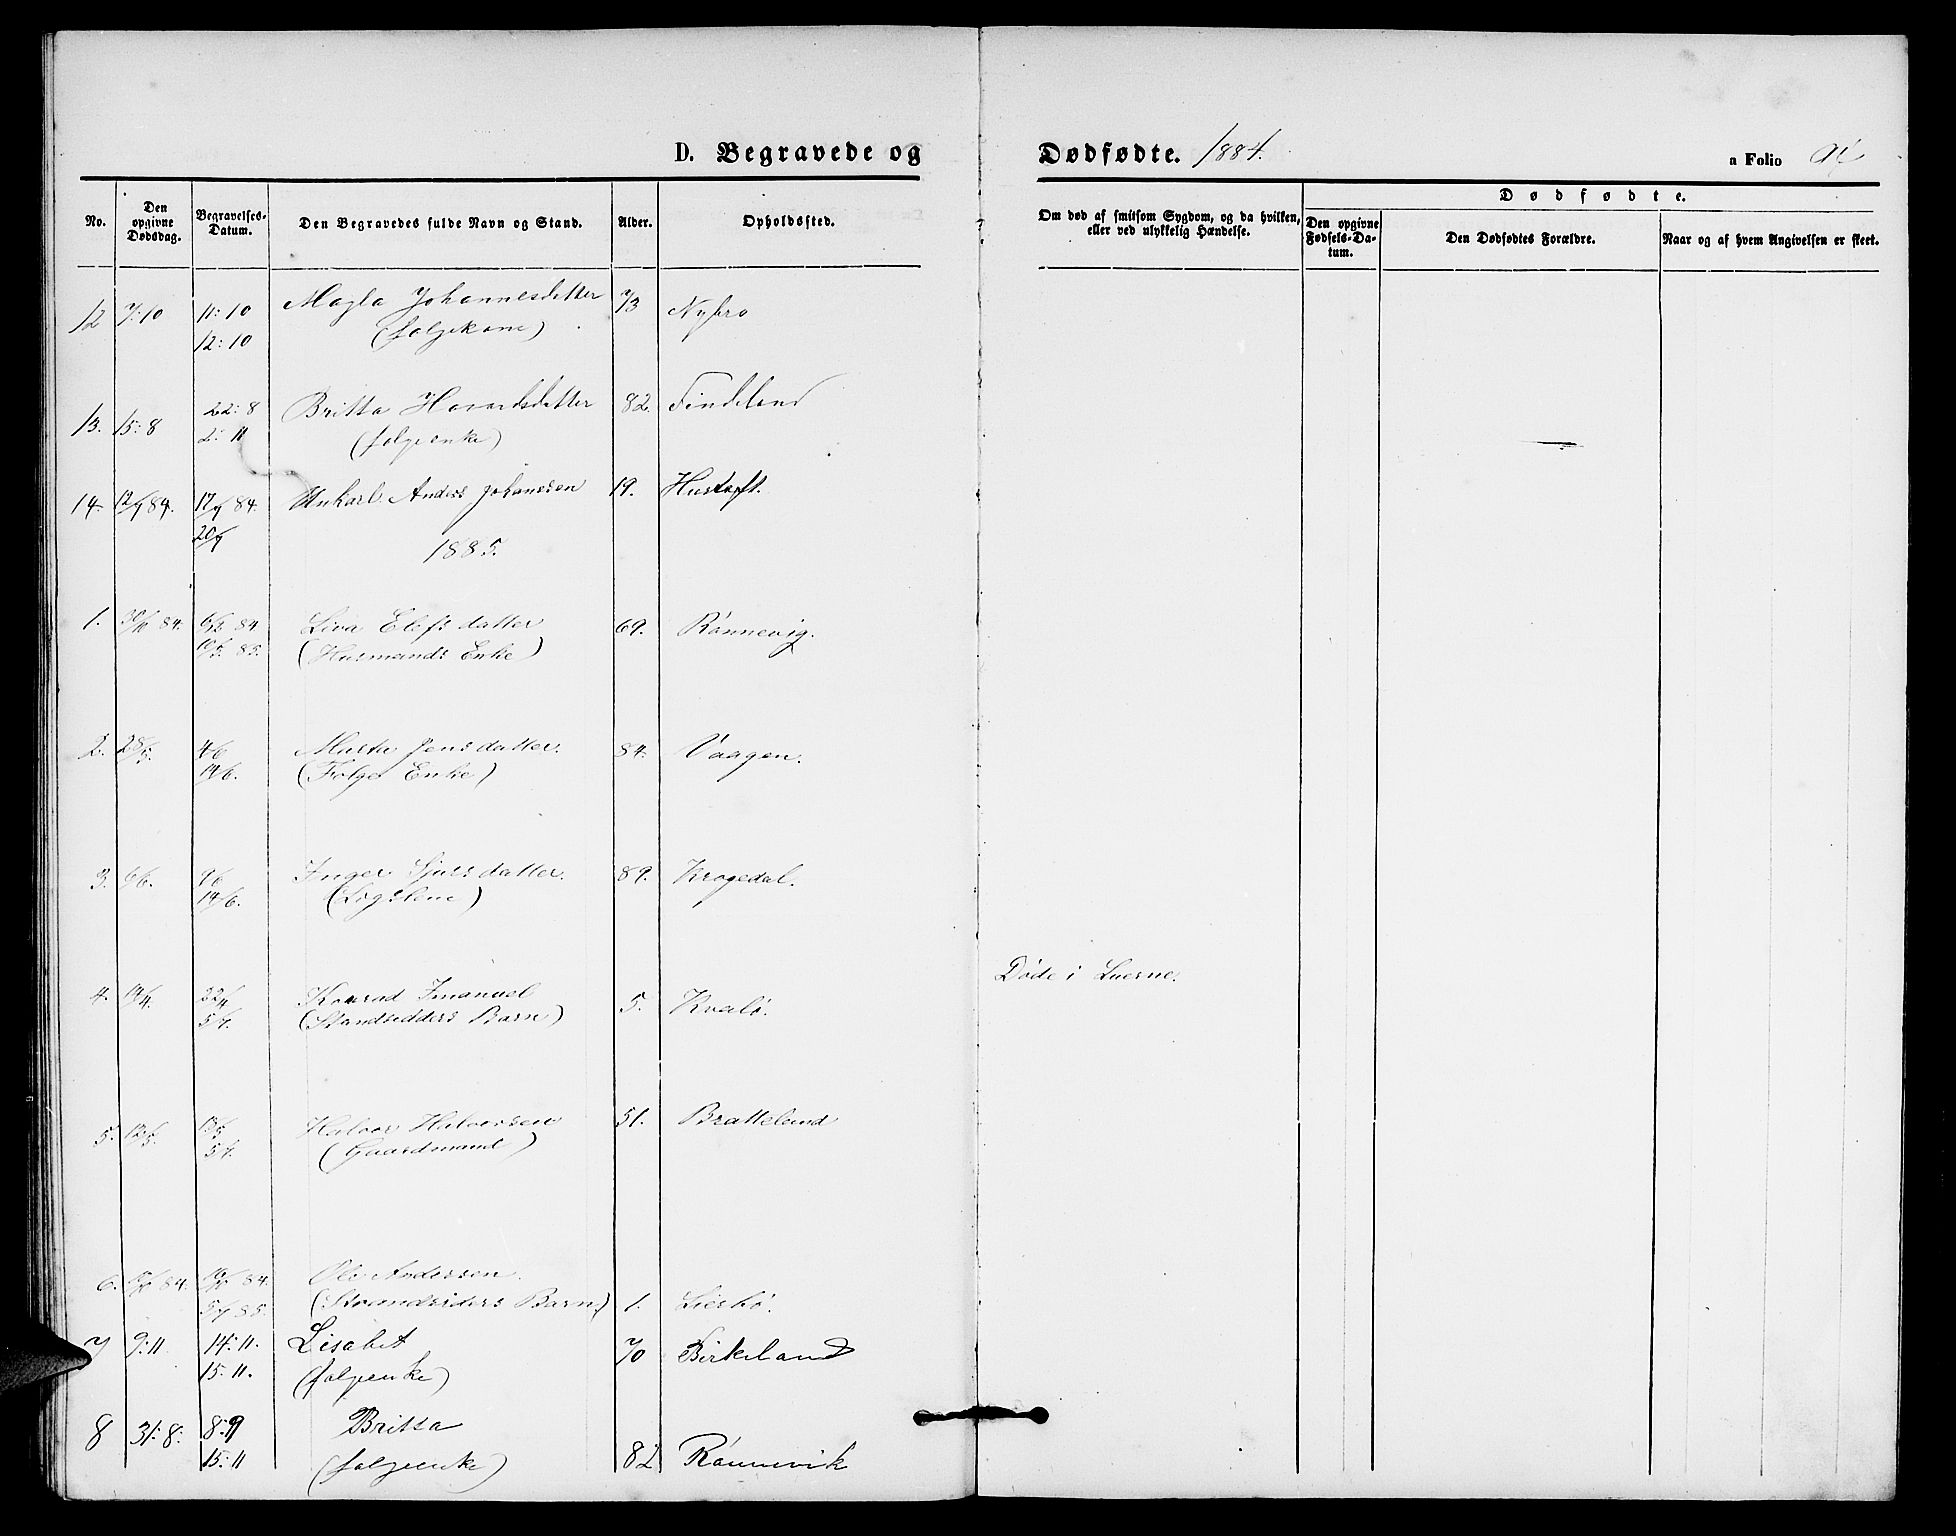 D. Begravede og Dødfødte. 1884.
a Folio
No.
Den opgivne Dødsdag.
Begravelses-Datum.
Den Begravedes fulde Navn og Stand.
Alder.
Opholdssted.
Om død af smitsom Sygdom, og da hvilken, eller ved ulykkelig Hændelse.
Dødfødte.
Den opgivne Fødsels-Datum.
Den Dødfødtes Forældre.
Naar og af hvem Angivelsen er skeet.
12 7:10 11:10 Magla Johannesdatter 73 Nybro
12:10 (folgekone)
13. 15:8 22:8 Britta Havardsdatter 82. Tindeland
2:11 (folgeenke)
14. 12/9 84. 17/9 84. Unkarl. Anders Johansen 19. Hustoft.
20/9
1885.
1. 30/11 84. 6/12 84 Siva Elefsdatter 69. Rönnevig.
10/5 85. (Husmands Enke)
2. 28/5. 4/6 Marta Jensdatter. 84. Vaagen.
14/6. (Folge Enke)
3. 6/6. 9/6 Inger Sjursdatter. 89. Krogedal.
14/6. (Logslem)
4. 14/4. 22/4 Konrad Imanuel 5. Kvalö. Döde i Luerne.
5/7. (Standsidders Barn)
5. 12/5. 15/5 Halvor Halvorsen 51. Bratteland
5/7. (Gaardmand)
6. 84. 84. Ole Andersen.
5/7 85. (Strandsiders Barn) 1. Lieskö.
7 9:11 14:11. Lisabet 70 Birkeland
15:11. (folgeenke)
8 31:8: 8:9 Britta
15:11 (folgeenke) 82 Rönnevik